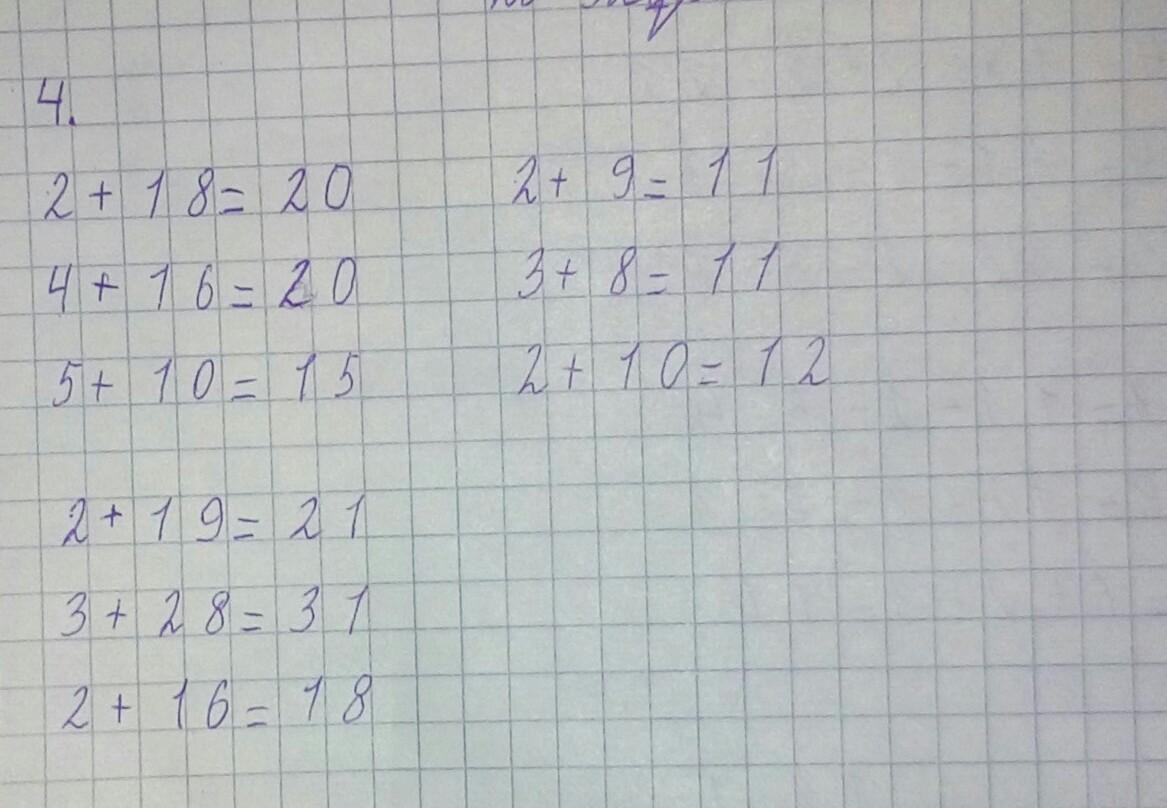 4.
2 + 18 = 20
4 + 16 = 20
5 + 10 = 15
2 + 9 = 11
3 + 8 = 11
2 + 10 = 12
2 + 19 = 21
3 + 28 = 31
2 + 16 = 18